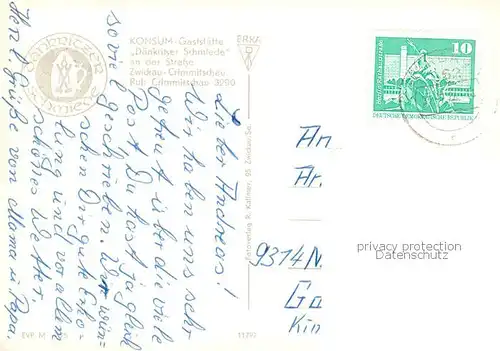 KONSUM-Gaststätte
„Dänkritzer Schmiede"
an der Straße
Zwickau-Crimmitschau
Ruf: Crimmitschau 3090
ERKA
DÄNKRITZER
SCHMIEDE
Lieber Andreas!
Wir haben uns sehr
gefreut über die viele
Post. Du hast ja gleich
soviel geschrieben. Wir wün-
schen Dir gute Erho-
lung und vor allem
schönes Wetter.
Herzl. Grüße von Mama u. Papa.
EVP: M
Fotoverlag R. Kallmer, 95 Zwickau/Sa.
10
DEUTSCHE DEMOKRATISCHE REPUBLIK
An
Ar.
9314 N.
Ga
Kin
privacy protection
Datenschutz